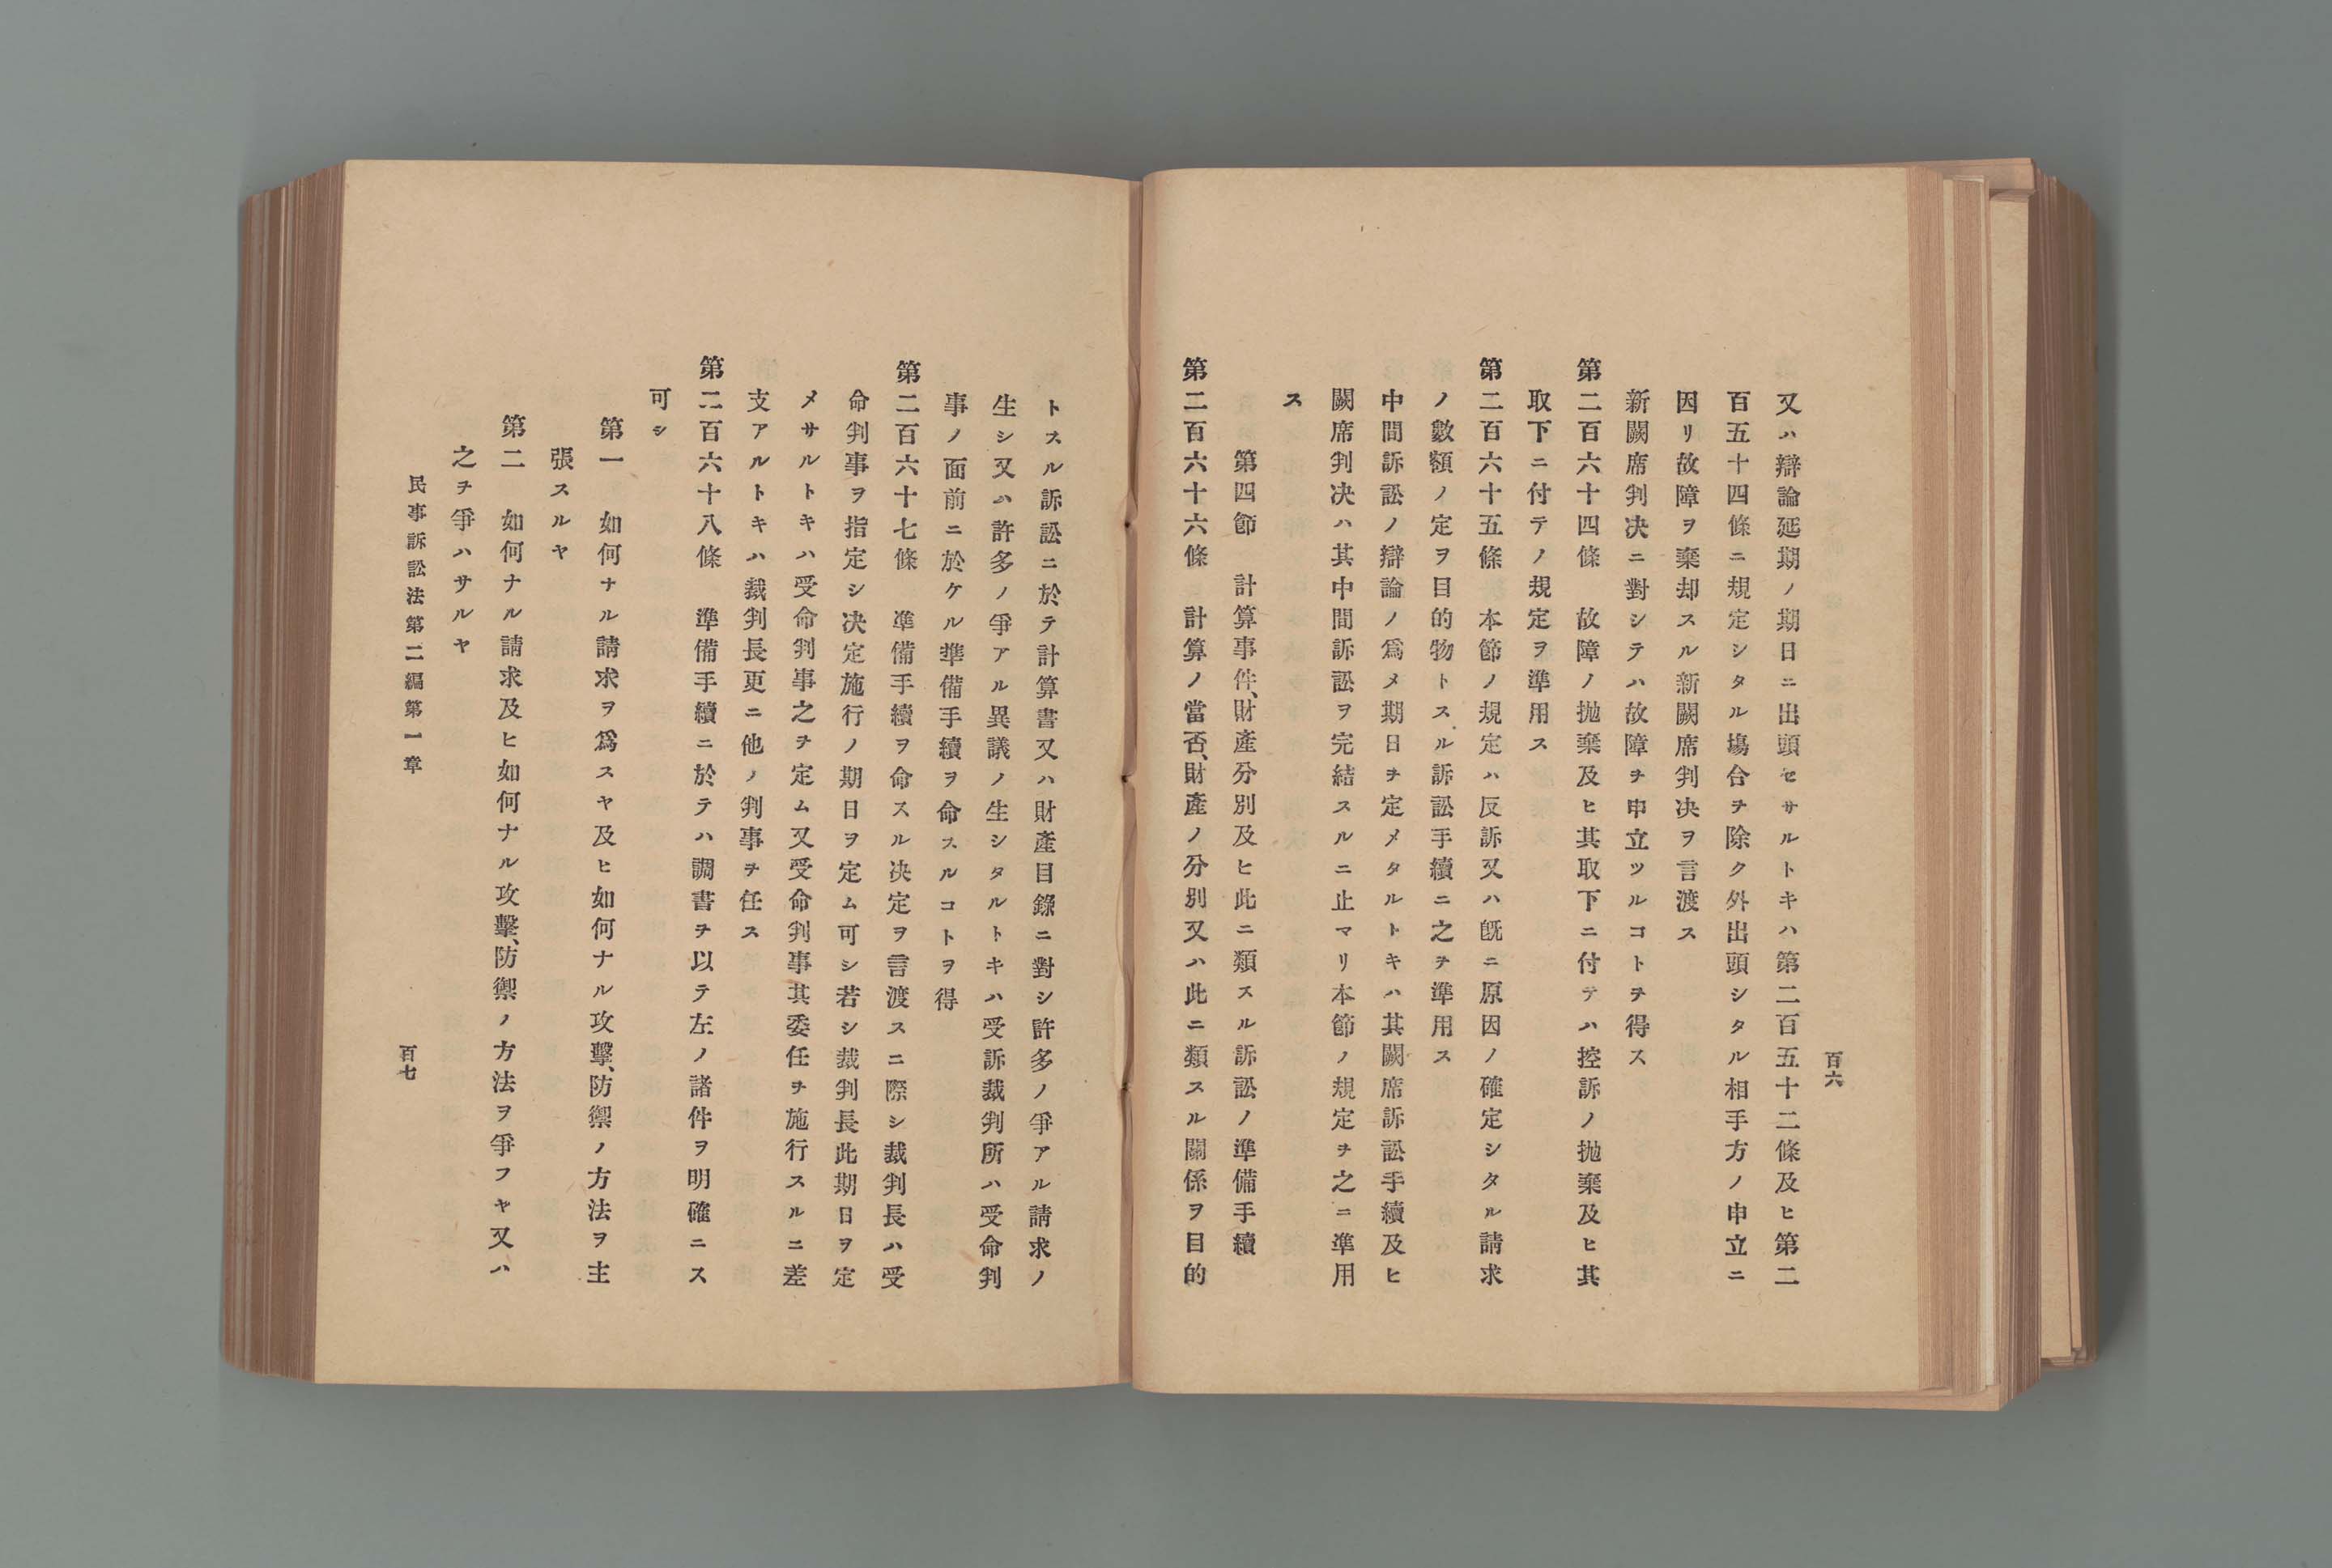 百六
又ハ辯論延期ノ期日ニ出頭セサルトキハ第二百五十二條及ヒ第二
百五十四條ニ規定シタル塲合ヲ除ク外出頭シタル相手方ノ申立ニ
因リ故障ヲ棄却スル新闕席判决ヲ言渡ス
新闕席判决ニ對シテハ故障ヲ申立ツルコトヲ得ス
第二百六十四條　故障ノ抛棄及ヒ其取下ニ付テハ控訴ノ抛棄及ヒ其
取下ニ付テノ規定ヲ準用ス
第二百六十五條　本節ノ規定ハ反訴又ハ既ニ原因ノ確定シタル請求
ノ數額ノ定ヲ目的物トスル訴訟手續ニ之ヲ準用ス
中間訴訟ノ辯論ノ爲メ期日ヲ定メタルトキハ其闕席訴訟手續及ヒ
闕席判决ハ其中間訴訟ヲ完結スルニ止マリ本節ノ規定ヲ之ニ準用
ス
第四節　計算事件、財產分別及ヒ此ニ類スル訴訟ノ準備手續
第二百六十六條　計算ノ當否、財產ノ分別又ハ此ニ類スル關係ヲ目的
トスル訴訟ニ於テ計算書又ハ財產目錄ニ對シ許多ノ爭アル請求ノ
生シ又ハ許多ノ爭アル異議ノ生シタルトキハ受訴裁判所ハ受命判
事ノ面前ニ於ケル準備手續ヲ命スルコトヲ得
第二百六十七條　準備手續ヲ命スル决定ヲ言渡スニ際シ裁判長ハ受
命判事ヲ指定シ决定施行ノ期日ヲ定ム可シ若シ裁判長此期日ヲ定
メサルトキハ受命判事之ヲ定ム又受命判事其委任ヲ施行スルニ差
支アルトキハ裁判長更ニ他ノ判事ヲ任ス
第二百六十八條　準備手續ニ於テハ調書ヲ以テ左ノ諸件ヲ明確ニス
可シ
第一　如何ナル請求ヲ爲スヤ及ヒ如何ナル攻擊、防禦ノ方法ヲ主
張スルヤ
第二　如何ナル請求及ヒ如何ナル攻擊、防禦ノ方法ヲ爭フヤ又ハ
之ヲ爭ハサルヤ
民事訴訟法第二編第一章
百七